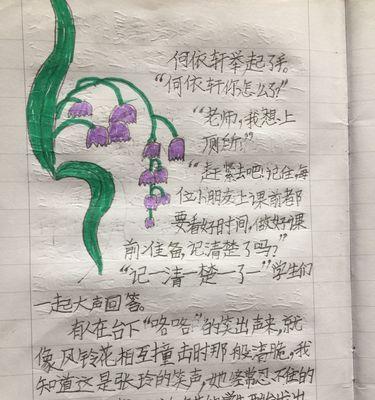 何依轩举起了手。
“何依轩你怎么了?”
“老师,我想上
厕所。”
“赶紧去吧!记住,每
位小朋友上课前都
要看好时间,做好课
前准备,记清楚了吗?”
“记一清一楚一了一”学生们
一起大声回答。
有人在台下“咯咯”的笑出声来,就
像风铃花相互撞击时那般清脆,我
知道这是张玲的笑声,她经常忍不住的